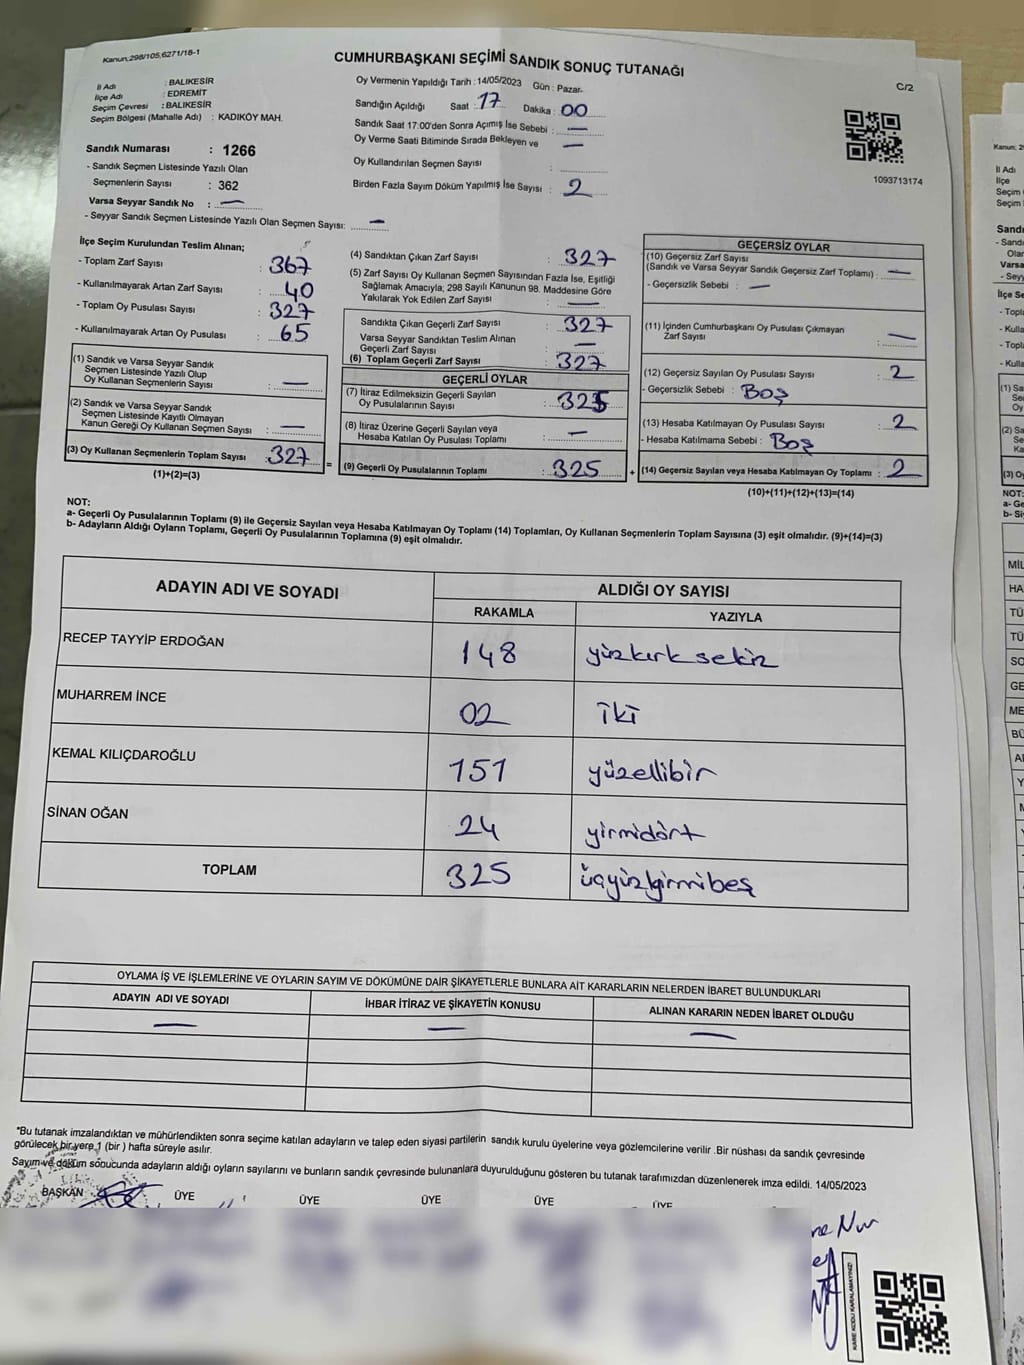 Kanun;298/105,6271/18-1
CUMHURBAŞKANI SEÇİMİ SANDIK SONUÇ TUTANAĞI
C/2
İl Adı : BALIKESİR
İlçe Adı : EDREMİT
Seçim Çevresi : BALIKESİR
Seçim Bölgesi (Mahalle Adı) : KADIKÖY MAH.
Sandık Numarası : 1266
- Sandık Seçmen Listesinde Yazılı Olan
Seçmenlerin Sayısı : 362
Varsa Seyyar Sandık No : —
- Seyyar Sandık Seçmen Listesinde Yazılı Olan Seçmen Sayısı: —
Oy Vermenin Yapıldığı Tarih : 14/05/2023 Gün : Pazar
Sandığın Açıldığı Saat : 17 Dakika : 00
Sandık Saat 17:00'den Sonra Açımış İse Sebebi : —
Oy Verme Saati Bitiminde Sırada Bekleyen ve —
Oy Kullandırılan Seçmen Sayısı :
Birden Fazla Sayım Döküm Yapılmış İse Sayısı : 2
1093713174
İlçe Seçim Kurulundan Teslim Alınan;
- Toplam Zarf Sayısı : 367
- Kullanılmayarak Artan Zarf Sayısı : 40
- Toplam Oy Pusulası Sayısı : 327
- Kullanılmayarak Artan Oy Pusulası : 65
(1) Sandık ve Varsa Seyyar Sandık
Seçmen Listesinde Yazılı Olup
Oy Kullanan Seçmenlerin Sayısı : —
(2) Sandık ve Varsa Seyyar Sandık
Seçmen Listesinde Kayıtlı Olmayan
Kanun Gereği Oy Kullanan Seçmen Sayısı : —
(3) Oy Kullanan Seçmenlerin Toplam Sayısı : 327 =
(1)+(2)=(3)
(4) Sandıktan Çıkan Zarf Sayısı : 327
(5) Zarf Sayısı Oy Kullanan Seçmen Sayısından Fazla İse, Eşitliği
Sağlamak Amacıyla; 298 Sayılı Kanunun 98. Maddesine Göre
Yakılarak Yok Edilen Zarf Sayısı : —
Sandıkta Çıkan Geçerli Zarf Sayısı : 327
Varsa Seyyar Sandıktan Teslim Alınan
Geçerli Zarf Sayısı : —
(6) Toplam Geçerli Zarf Sayısı : 327
GEÇERLİ OYLAR
(7) İtiraz Edilmeksizin Geçerli Sayılan
Oy Pusulalarının Sayısı : 325
(8) İtiraz Üzerine Geçerli Sayılan veya
Hesaba Katılan Oy Pusulası Toplamı : —
(9) Geçerli Oy Pusulalarının Toplamı : 325 +
GEÇERSİZ OYLAR
(10) Geçersiz Zarf Sayısı
(Sandık ve Varsa Seyyar Sandık Geçersiz Zarf Toplamı) : —
- Geçersizlik Sebebi : —
(11) İçinden Cumhurbaşkanı Oy Pusulası Çıkmayan
Zarf Sayısı : —
(12) Geçersiz Sayılan Oy Pusulası Sayısı : 2
- Geçersizlik Sebebi : Boş
(13) Hesaba Katılmayan Oy Pusulası Sayısı : 2
- Hesaba Katılmama Sebebi : Boş
(14) Geçersiz Sayılan veya Hesaba Katılmayan Oy Toplamı : 2
(10)+(11)+(12)+(13)=(14)
NOT:
a- Geçerli Oy Pusulalarının Toplamı (9) ile Geçersiz Sayılan veya Hesaba Katılmayan Oy Toplamı (14) Toplamları, Oy Kullanan Seçmenlerin Toplam Sayısına (3) eşit olmalıdır. (9)+(14)=(3)
b- Adayların Aldığı Oyların Toplamı, Geçerli Oy Pusulalarının Toplamına (9) eşit olmalıdır.
ADAYIN ADI VE SOYADI
ALDIĞI OY SAYISI
RAKAMLA YAZIYLA
RECEP TAYYİP ERDOĞAN 148 yüzkırksekiz
MUHARREM İNCE 02 iki
KEMAL KILIÇDAROĞLU 151 yüzellibir
SİNAN OĞAN 24 yirmidört
TOPLAM 325 üçyüzyirmibeş
OYLAMA İŞ VE İŞLEMLERİNE VE OYLARIN SAYIM VE DÖKÜMÜNE DAİR ŞİKAYETLERLE BUNLARA AİT KARARLARIN NELERDEN İBARET BULUNDUKLARI
ADAYIN ADI VE SOYADI İHBAR İTİRAZ VE ŞİKAYETİN KONUSU ALINAN KARARIN NEDEN İBARET OLDUĞU
— — —
*Bu tutanak imzalandıktan ve mühürlendikten sonra seçime katılan adayların ve talep eden siyasi partilerin sandık kurulu üyelerine veya gözlemcilerine verilir .Bir nüshası da sandık çevresinde
görülecek bir yere 1 (bir ) hafta süreyle asılır.
Sayım ve döküm sonucunda adayların aldığı oyların sayılarını ve bunların sandık çevresinde bulunanlara duyurulduğunu gösteren bu tutanak tarafımızdan düzenlenerek imza edildi. 14/05/2023
BAŞKAN ÜYE ÜYE ÜYE ÜYE ÜYE
Nur
KARE KODU KARALAMAYINIZ!